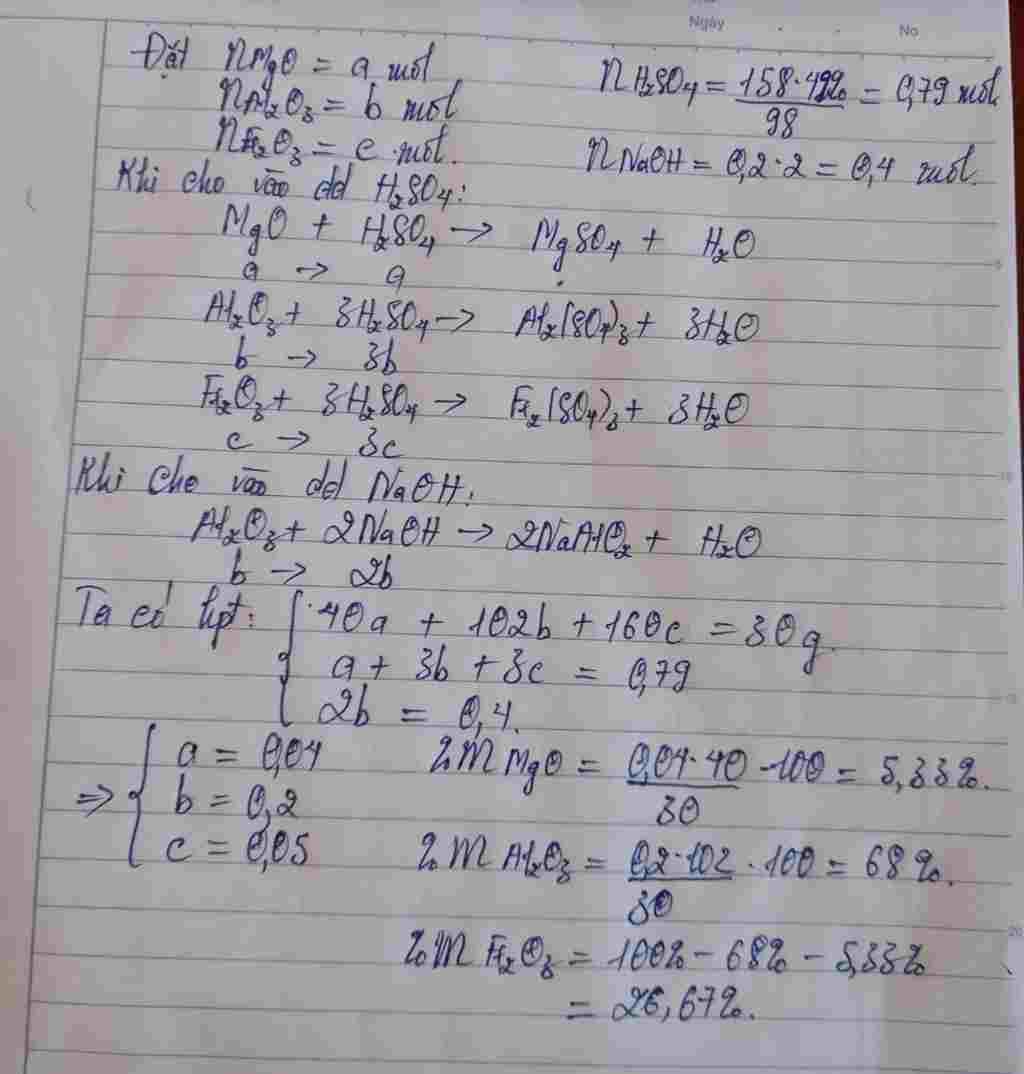 Ngày No
Đặt nMgO = a mol
nAl₂O₃ = b mol
nFe₂O₃ = c mol.
nH₂SO₄ = 158.49% / 98 = 0,79 mol
nNaOH = 0,2.2 = 0,4 mol.
Khi cho vào dd H₂SO₄:
MgO + H₂SO₄ → MgSO₄ + H₂O
a → a
Al₂O₃ + 3H₂SO₄ → Al₂(SO₄)₃ + 3H₂O
b → 3b
Fe₂O₃ + 3H₂SO₄ → Fe₂(SO₄)₃ + 3H₂O
c → 3c
Khi cho vào dd NaOH:
Al₂O₃ + 2NaOH → 2NaAlO₂ + H₂O
b → 2b
Ta có hpt: { 40a + 102b + 160c = 30g.
a + 3b + 3c = 0,79
2b = 0,4.
⇒ { a = 0,04
b = 0,2
c = 0,05
%mMgO = 0,04.40 / 30 .100 = 5,33%.
%mAl₂O₃ = 0,2.102 / 30 .100 = 68%.
%mFe₂O₃ = 100% - 68% - 5,33%
= 26,67%.